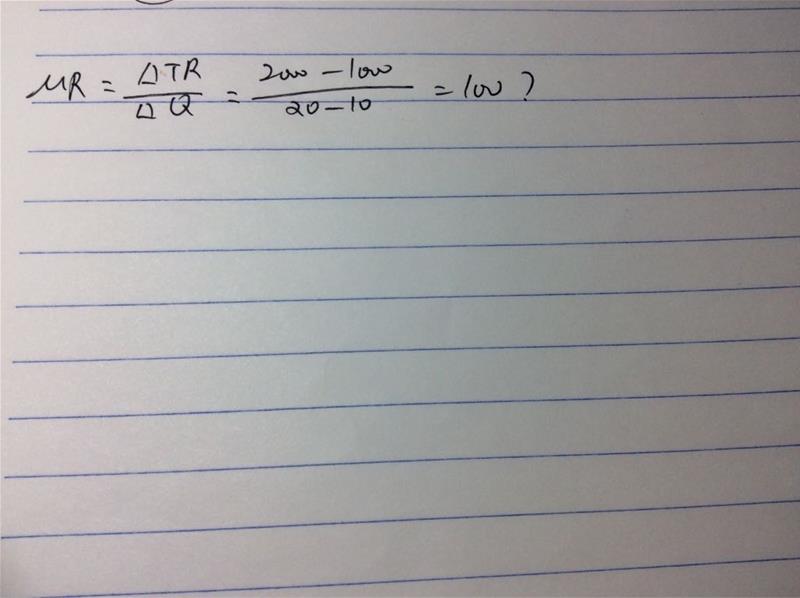 MR = ΔTR / ΔQ = 2000 - 1000 / 20 - 10 = 100 ?